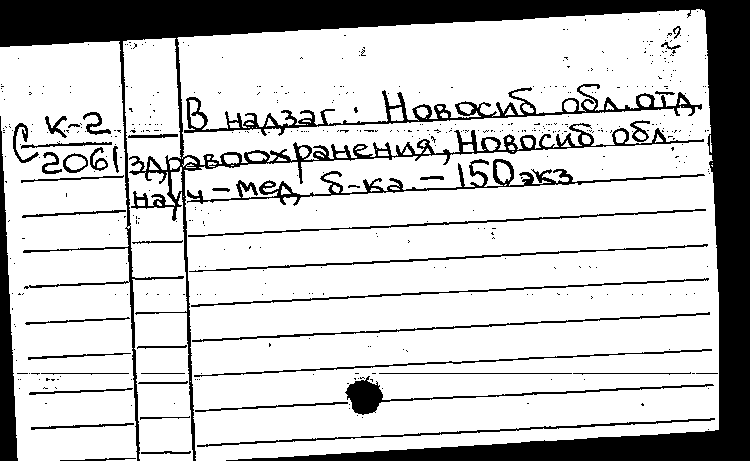 2
С К-2
2061
В надзаг.: Новосиб обл. отд.
здравоохранения, Новосиб обл.
науч-мед. б-ка. - 150 экз.